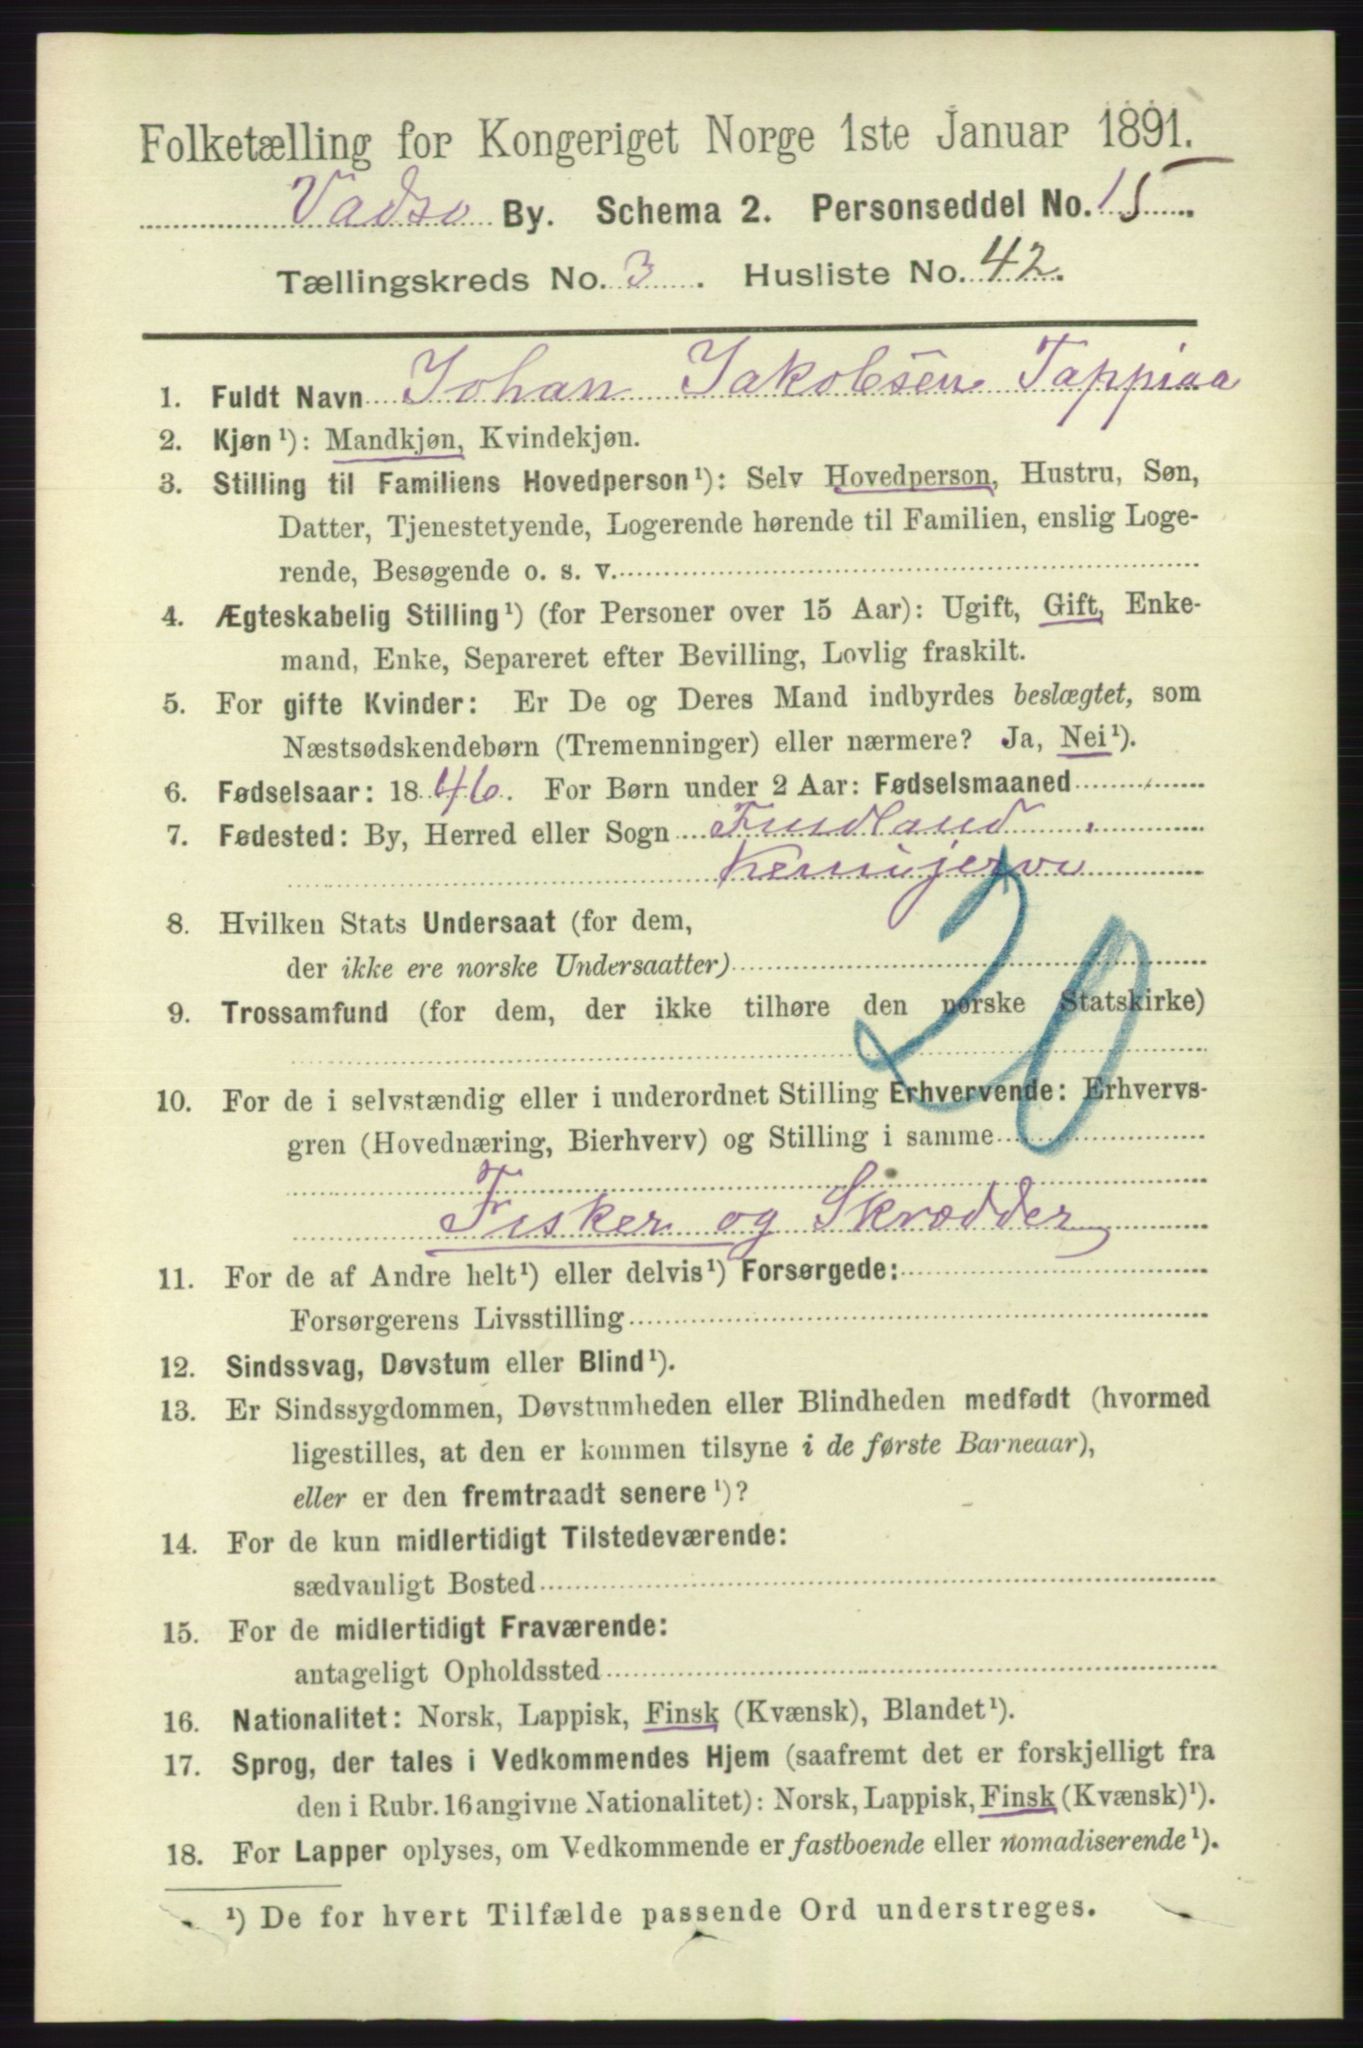 Folketælling for Kongeriget Norge 1ste Januar 1891.
Vadsø By. Schema 2. Personseddel No. 15
Tællingskreds No. 3. Husliste No. 42.
1. Fuldt Navn Johan Jakobsen Tappiaa
2. Kjøn¹): Mandkjøn, Kvindekjøn.
3. Stilling til Familiens Hovedperson¹): Selv Hovedperson, Hustru, Søn,
Datter, Tjenestetyende, Logerende hørende til Familien, enslig Loge-
rende, Besøgende o. s. v.
4. Ægteskabelig Stilling¹) (for Personer over 15 Aar): Ugift, Gift, Enke-
mand, Enke, Separeret efter Bevilling, Lovlig fraskilt.
5. For gifte Kvinder: Er De og Deres Mand indbyrdes beslægtet, som
Næstsødskendebørn (Tremenninger) eller nærmere? Ja, Nei¹).
6. Fødselsaar: 1846. For Børn under 2 Aar: Fødselsmaaned
7. Fødested: By, Herred eller Sogn Findland
Kemijerve
20
8. Hvilken Stats Undersaat (for dem,
der ikke ere norske Undersaatter)
9. Trossamfund (for dem, der ikke tilhøre den norske Statskirke)
10. For de i selvstændig eller i underordnet Stilling Erhvervende: Erhvervs-
gren (Hovednæring, Bierhverv) og Stilling i samme
Fisker og Skrædder
11. For de af Andre helt¹) eller delvis¹) Forsørgede:
Forsørgerens Livsstilling
12. Sindssvag, Døvstum eller Blind¹).
13. Er Sindssygdommen, Døvstumheden eller Blindheden medfødt (hvormed
ligestilles, at den er kommen tilsyne i de første Barneaar),
eller er den fremtraadt senere¹)?
14. For de kun midlertidigt Tilstedeværende:
sædvanligt Bosted
15. For de midlertidigt Fraværende:
antageligt Opholdssted
16. Nationalitet: Norsk, Lappisk, Finsk (Kvænsk), Blandet¹).
17. Sprog, der tales i Vedkommendes Hjem (saafremt det er forskjelligt fra
den i Rubr. 16 angivne Nationalitet): Norsk, Lappisk, Finsk (Kvænsk)¹).
18. For Lapper oplyses, om Vedkommende er fastboende eller nomadiserende¹).
¹) De for hvert Tilfælde passende Ord understreges.